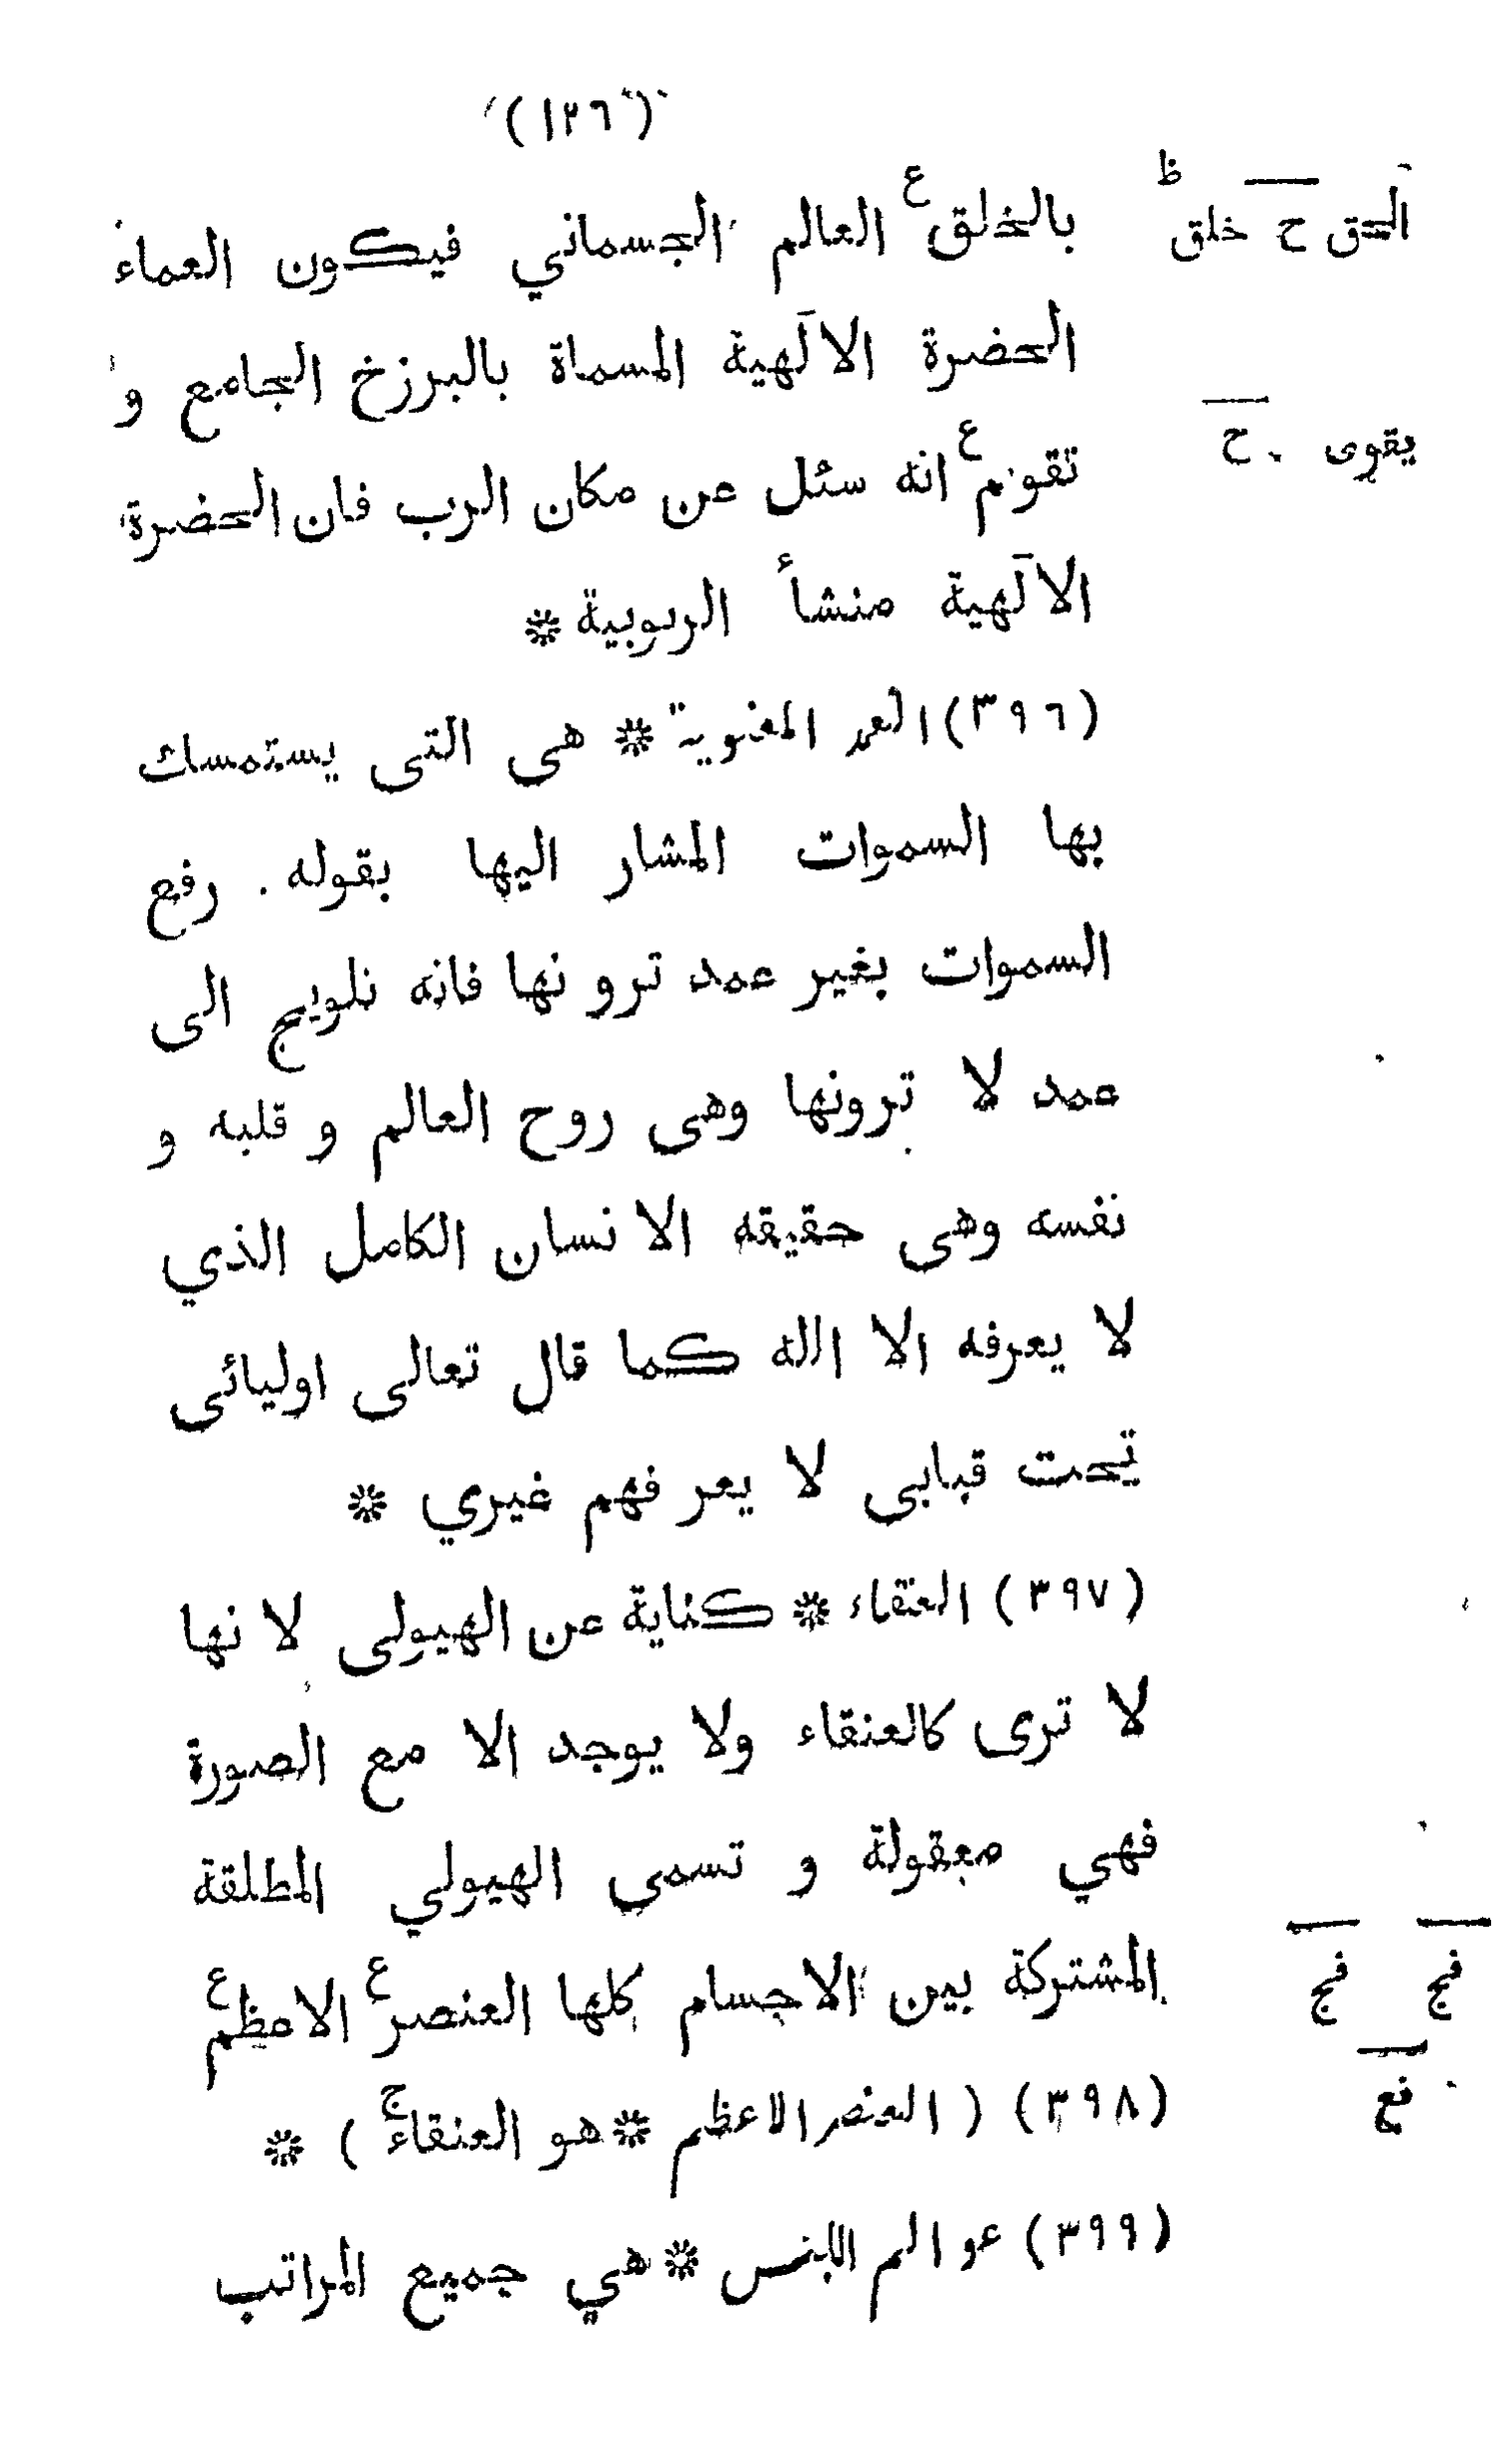 (١٣٦)
بالخلق ع العالم الجسماني فيكون العماء
الحق ح خلق ظ
الحضرة الالٓهية المسماة بالبرزخ الجامع و
تقوم ع انه سئل عن مكان الرب فان الحضرة
يقوى ح
الالٓهية منشأ الربوبية *
(٣٩٦) العمد المعنوية * هى التى يستمسك
بها السموات المشار اليها بقوله . رفع
السموات بغير عمد ترو نها فانه تلويح الى
عمد لا ترونها وهى روح العالم و قلبه و
نفسه وهى حقيقه الا نسان الكامل الذي
لا يعرفه الا الله كما قال تعالى اوليائى
تحت قبابى لا يعر فهم غيري *
(٣٩٧) العنقاء * كناية عن الهيولى لا نها
لا ترى كالعنقاء ولا يوجد الا مع الصورة
فهي معقولة و تسمى الهيولي المطلقة
المشتركة بين الاجسام كلها العنصر ع الاعظم ع
فج فج
(٣٩٨) ( العنصر الاعظم * هو العنقاء ج ) *
فع
(٣٩٩) عو الم اللبنس * هي جميع المراتب